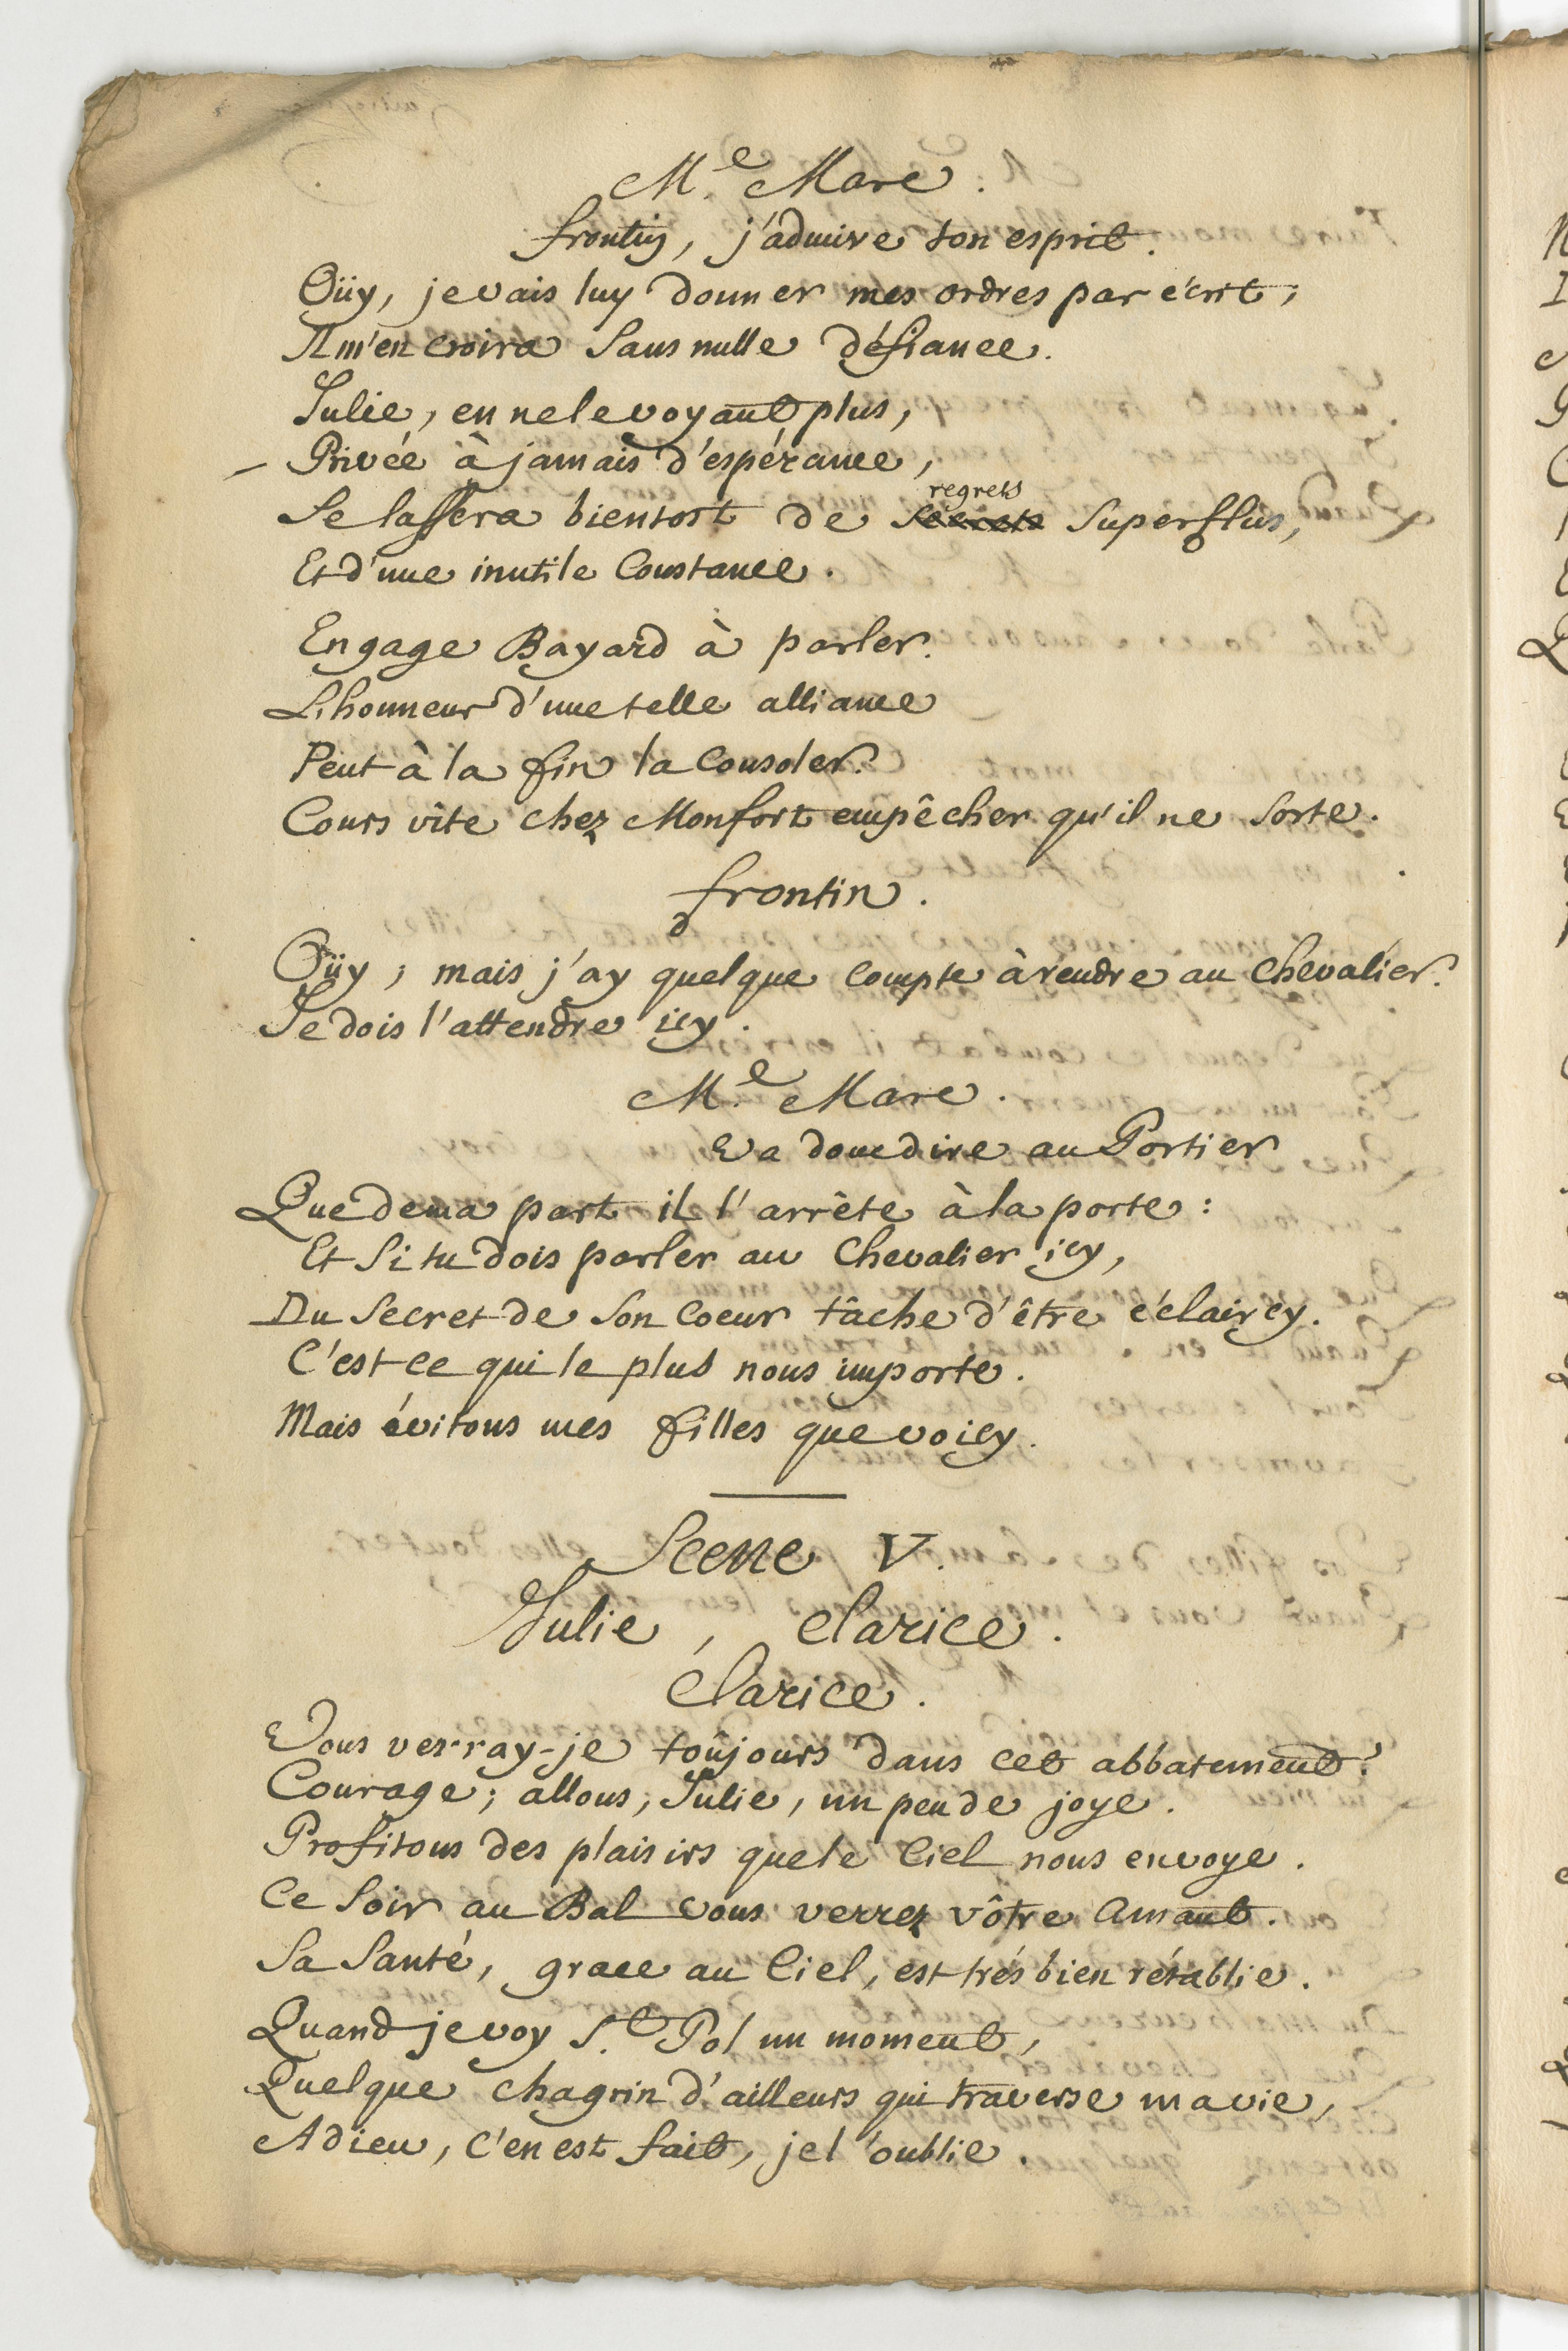 M.e Mare.
frontin, j'admire ton esprit.
Oüy, je vais luy donner mes ordres par écrit;
Il m'en croira Sans nulle défiance.
Julie, en ne le voyant plus,
– Privée à jamais d'espérance,
regrets
Se lassera bientost de secrets Superflus,
Et d'une inutile Constance.
Engage Bayard à parler.
L'honneur d'une telle alliance
Peut à la fin la Consoler.
Cours vîte chez Monfort empêcher qu'il ne Sorte.
frontin.
Oüy; mais j'ay quelque Compte à rendre au Chevalier.
Je dois l'attendre icy.
M.e Mare.
Va donc dire au Portier
Que de ma part il l'arrête à la porte:
Et Si tu dois parler au Chevalier icy,
Du Secret de Son Coeur tâche d'être éclaircy.
C'est ce qui le plus nous importe.
Mais évitons mes filles que voicy.
Scene V.
Julie, Clarice.
Clarice.
Vous verray-je toûjours dans cet abbatement?
Courage; allons, Julie, un peu de joye.
Profitons des plaisirs que le Ciel nous envoye.
Ce Soir au Bal vous verrez vôtre Amant.
Sa Santé, grace au Ciel, est trés bien rétablie.
Quand je voy S.t Pol un moment,
Quelque chagrin d'ailleurs qui traverse ma vie,
Adieu, c'en est fait, je l'oublie